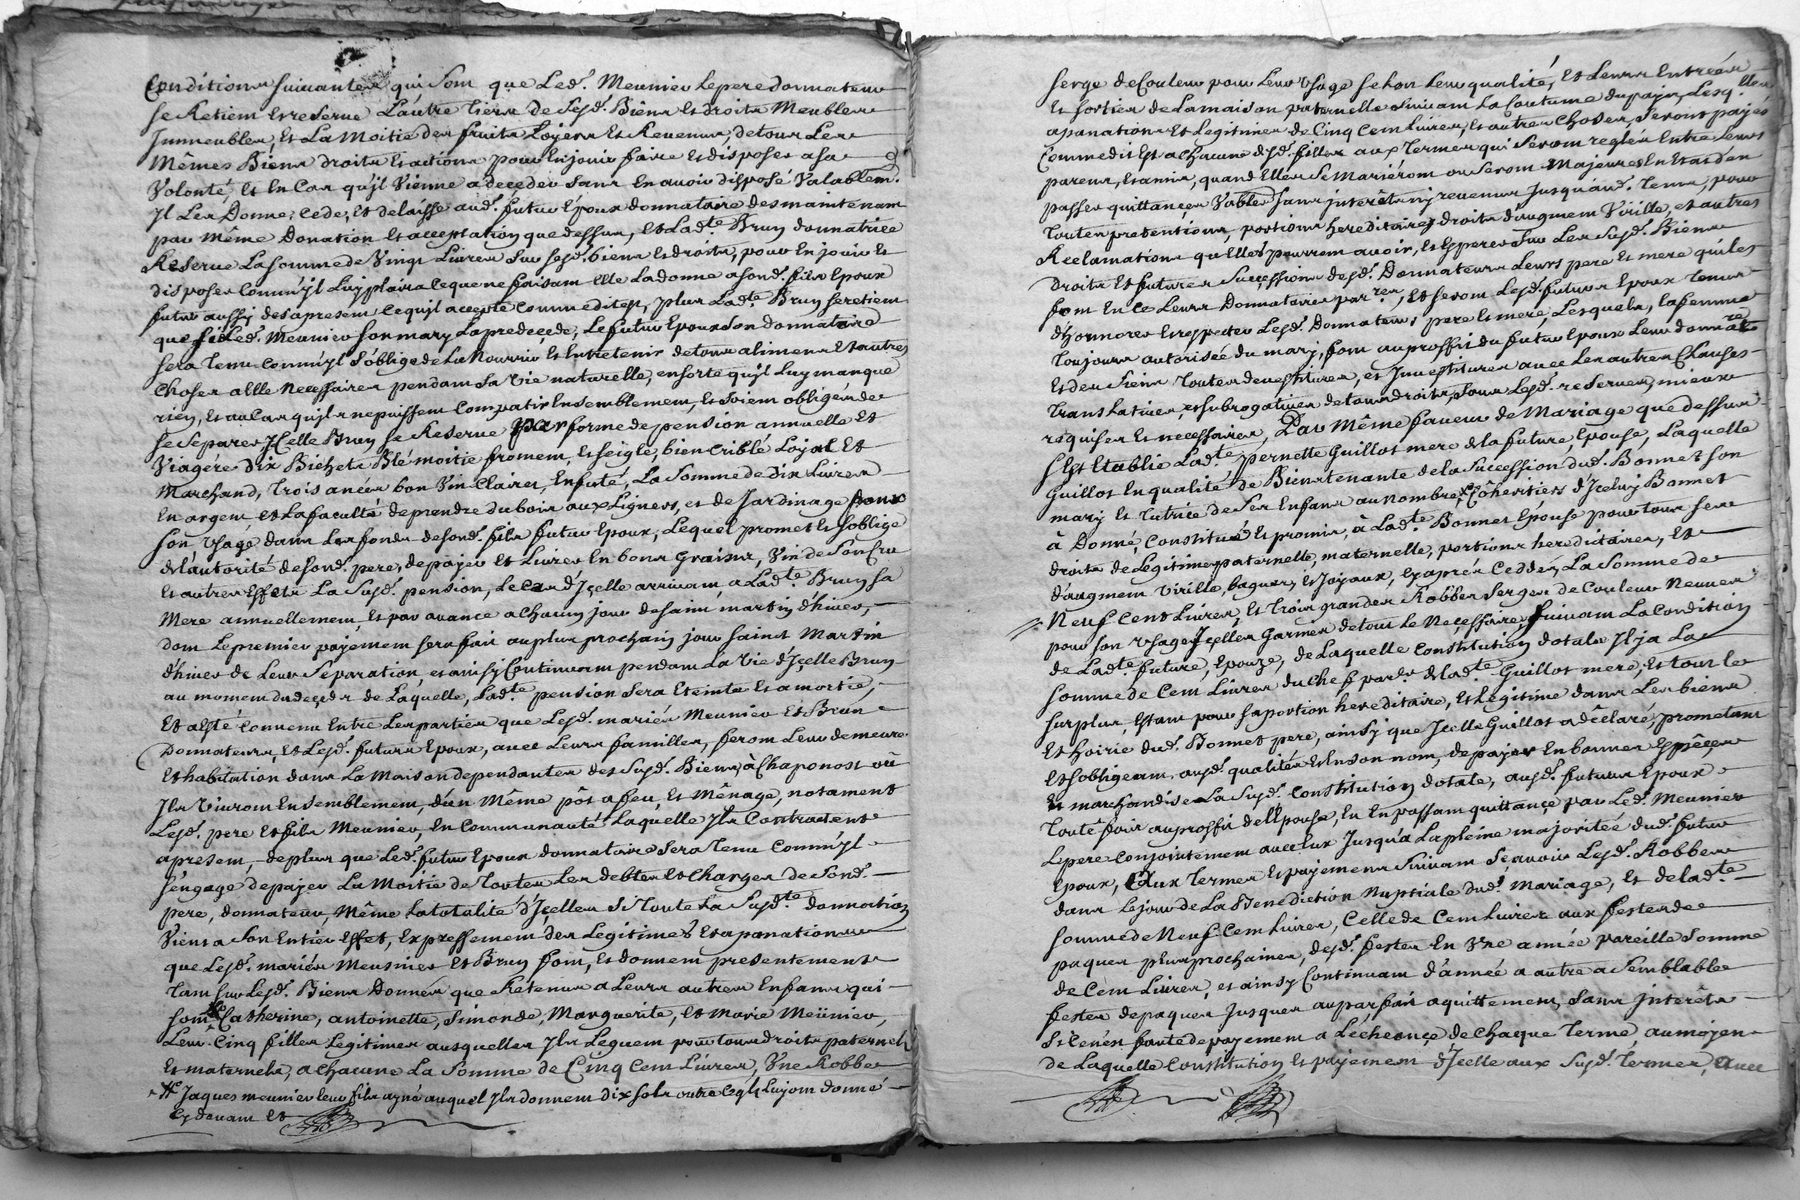 Conditions suivantes qui sont que Led. Meunier Le pere donnateur
se Retient et reserve L'autre tiers de Sesd. Biens et droits Meubles
Immeubles, et La Moitié des fruits Loyers et Revenus, de tous Les
Mêmes Biens droits et actions pour en jouir faire et disposer a sa
Volonté, et en Cas qu'il Vienne a deceder sans en avoir disposé Valablemt.
Il Les Donne, Cede, et delaisse aud. futur Epoux donnataire des maintenant
par même Donation et acceptation que dessus, et Lade. Brun donnatrice
Reserve La somme de Vingt Livres sur sesd. biens et droits, pour en jouir et
disposer Comm'il Luy plaira Ce que ne faisant elle La donne a sond. fils Epoux
futur aussy des a present ce qu'il accepte Comme dit est, plus Lade. Brun se retient
que si Led. Meunier son mary La predecede, Le futur Epoux son donnataire
sera tenu Comm'il s'oblige de La Nourrir et Entretenir de tous aliments et autres
Choses a Elle Necessaires pendant sa vie naturelle, en sorte qu'il Luy manque
rien, et au Cas qu'ils ne puissent Compatir Ensemblement, et soient obligés de
se Separer Icelle Brun se Reserve par forme de pension annuelle et
Viagére dix Bichets Blé moitié froment, et seigle, bien Criblé Loyal et
Marchand, trois anées bon Vin Clairet, Enfuté, La Somme de dix Livres
En argent, et La faculté de prendre du bois aux Ligners, et de Jardinage pour
son Usage dans Les fonds de sond. fils futur Epoux, Lequel promet et s'oblige
de L'autorité de sond. pere, de payer et Livrer En bons grains, Vin de son Cru
et autres Effets La Susd. pension, Le Cas d'Icelle arrivant, a Lade. Brun sa
Mere annuellement, et par avance a Chacun jour de saint martin d'hiver,
dont Le premier payement sera fait au plus prochain jour saint Martin
d'hiver de Leur Separation, et ainsy Continuant pendant La Vie d'Icelle Brun
au moment du deçeds de Laquelle, Lade. pension sera Eteinte et amortie,
Et a Esté Convenu Entre Les parties que Lesd. mariés Meunier et Brun
Donnateurs, et Lesd. futurs Epoux, avec Leurs familles, feront Leur demeure
Et habitation dans La Maison dependantes des Susd. Biens, à Chaponost où
Ils Vivront Ensemblement, d'un Même pôt a feu, et Ménage, notament
Lesd. pere et fils Meunier, en Communauté Laquelle Ils Contractent
a present, de plus que Led. futur Epoux donnataire Sera tenu Comm'il
s'engage de payer La Moitié de toutes Les debtes et Charges de Sond.
pere, donnateur, Même La totalité d'Icelles Si toute La Susde. donnation
Vient a Son Entier Effet, Expressement des Legitimes et apanations
que Lesd. mariés Meusnier et Brun font, et donnent presentement
tant sur Lesd. Biens Donnés que Retenus a Leurs autres Enfans qui
sont Catherine, antoinette, Simonde, Marguerite, et Marie Meünier,
Leur Cinq filles Legitimes ausquelles Ils Leguent pour tous droits paternels
Et maternels, a chacune La Somme de Cinq Cent Livres, Une Robbe
Jaques meunier leur fils ayné auquel Ils donnent dix sols outre Ce qu'ils luy ont donné
Cy devant Et
serge de Couleur pour Leur Usage selon Leur qualité, et Leurs Entrées
Et sorties de La maison paternelle suivant La Coutume du pays, Lesqlles
apanations et Legitimes de Cinq Cent Livres, et autres Choses, seront payés
Comme dit est a chacune desd. filles aux termes qui seront reglés Entre Leurs
parens, et amis, quand Elles Se Mariéront ou seront Majeures en Etat d'en
passer quittances Vables sans intérêts ny revenus jusqu'aud. tems, pour
toutes pretentions, portions hereditaires droits d'augment Virille, et autres
Reclamations qu'Elles pourront avoir, et Esperer Sur Les Susd. Biens
Droits et futures Successions desd. Donnateurs Leurs pere et mere qui Les
font en ce Leurs Donnataires parres, et seront Lesd. futurs Epoux tenus
d'honnorer et respecter Lesd. Donnateurs pere et mere, Lesquels, La femme
toujours autorisée du mary, font au proffit du futur Epoux Leur donnatre
et des Siens toutes devestitures, et Investitures avec Les autres Clauses
translatives et subrogatives de tous droits, sous Lesd. reserves, mieux
requises et necessaires, Par Même faveur de Mariage que dessus
s'est Etablie Lade. pernette Guillot mere de La future Epouse, Laquelle
Guillot En qualité de Bientenante de La Succession dud. Bonnet son
mary et tutrice de Ses Enfans au nombre Cohéritiers d'Iceluy Bonnet
à Donné, Constitué et promis, à Lade. Bonnet Epouse pour tous ses
droits de Legitime paternelle, maternelle, portions hereditaires, et
d'augment Virille, bagues, et Joyaux, Cy après Ceddés, La Somme de
Neuf Cent Livres, et trois grandes Robbes Serges de Couleur Neuves
pour son usage Icelles Garnies de tout Le Neçessaire suivant La Condition
de Lade. future, Epouze, de Laquelle Constitution dotale Il ja La
somme de Cent Livres du Chef part de Lade. Guillot mere, et tout Le
surplus, Etant pour sa portion hereditaire, et Legitime dans Les biens
Et hoirie dud. Bonnet pere, ainsy que Icelle Guillot a déclaré, prometant
et s'obligeant ausd. qualités et En son nom, de payer En bonnes Espêces
et marchandises La Susd. Constitution dotale, ausd. futurs Epoux
toute fois au proffit de L'Epouse, En En passant quittance par Led. Meunier
Le pere Conjointement avec Eux Jusqu'à La pleine majoritée dud. futur
Epoux, Aux termes et payemens suivant Scavoir Lesd. Robbes
dans Le jour de La Benediction Nuptiale dud. Mariage, et de Lade.
somme de Neuf Cent Livres, Celle de Cent Livres aux festes de
paques plus prochaines, desd. festes En Une année pareille Somme
de Cent Livres, et ainsy Continuant d'année a autre a Semblables
festes de paques Jusques au parfait aquittement, Sans intérêts
Si Ce n'est faute de payement a L'echeance de Chaque terme, au moyen
de Laquelle Constitution et payement d'Icelle aux Susd. termes, avec